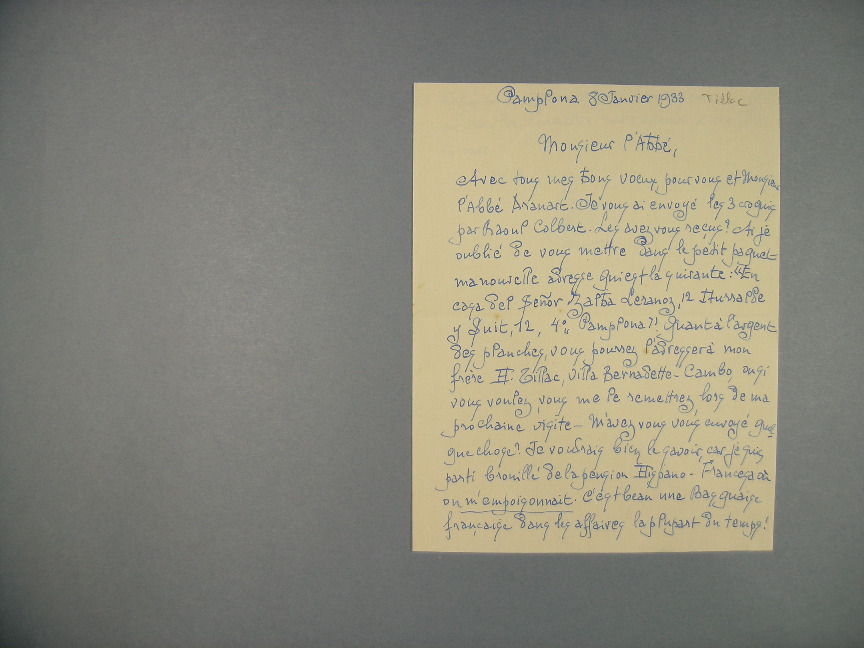 Pamplona 8 Janvier 1933 Tillac
Monsieur l'Abbé,
Avec tous mes bons voeux pour vous et Monsieur
l'Abbé Aranart. Je vous ai envoyé les 3 croquis
par Raoul Colbert. Les avez vous reçus? Ai je
oublié de vous mettre dans le petit paquet
ma nouvelle adresse qui est la suivante: "En
casa del Señor Zalba Lesanoz, 12 Iturralde
y Suit, 12, 4°., Pamplona"! Quant à l'argent
des planches, vous pouvez l'adresser à mon
frère H. Tillac, Villa Bernadette - Cambo, ou si
vous voulez, vous me le remettrez lors de ma
prochaine visite - M'avez vous vous envoyé quel-
que chose? Je voudrais bien le savoir, car je suis
parti brouillé de la pension Hispano-Francesa où
on m'empoisonnait. C'est beau une Basquaise
française dans les affaires la plupart du temps!